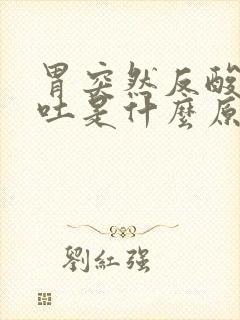 胃突然反酸
吐是什麼原
劉紅強